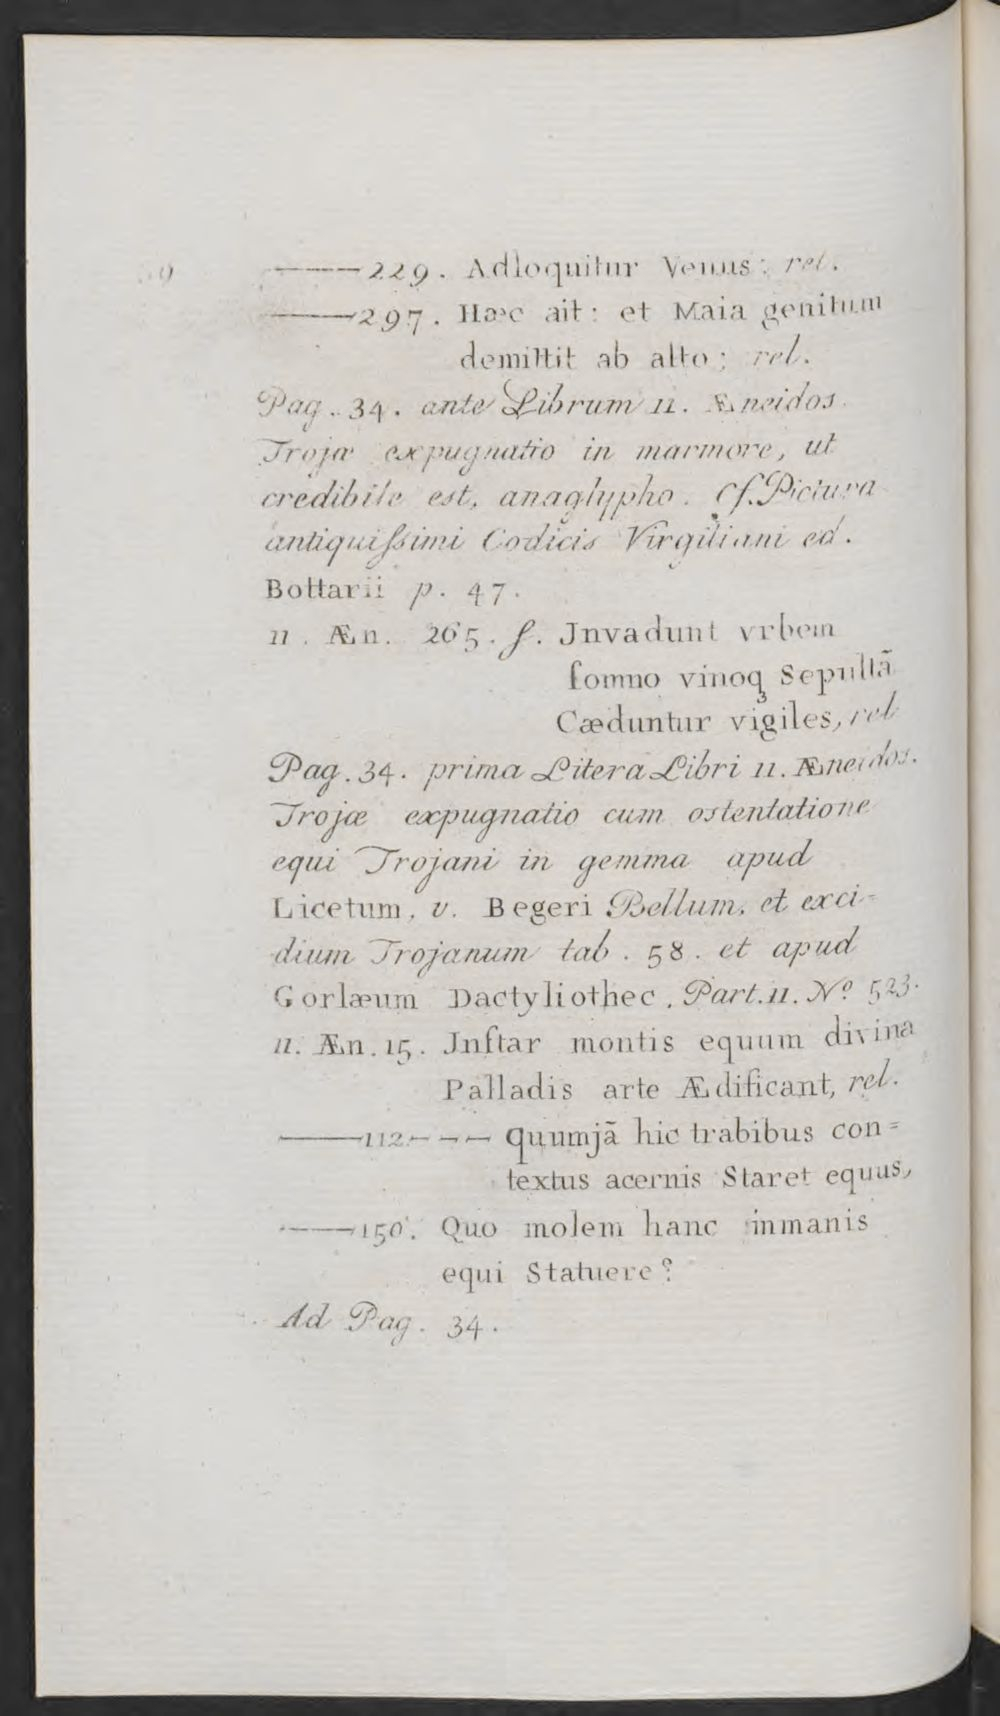 ——229. Adloquitur Venus: rel.
——297. Hæc ait: et Maia genitum
demittit ab alto; rel.
Pag. 34. ante Librum II. Æneidos.
Trojæ expugnatio in marmore, ut
credibile est, anaglypho. Cf. Pictura
antiquiſsimi Codicis Virgiliani ed.
Bottarii p. 47.
II. Æn. 265. ſ. Jnvadunt vrbem
ſomno vinoqꝫ Sepultā
Cæduntur vigiles, rel
Pag. 34. prima Litera Libri II. Æneidos.
Trojæ expugnatio cum ostentatione
equi Trojani in gemma apud
Licetum, v. Begeri Bellum, et exci=
dium Trojanum tab. 58. et apud
Gorlæum Dactyliothec. Part. II. Nº 523.
II. Æn. 15. Jnſtar montis equum divina
Palladis arte Ædificant, rel.
——112.— — — quumjā hic trabibus con=
textus acernis Staret equus,
——150. Quo molem hanc inmanis
equi Statuere?
Ad Pag. 34.